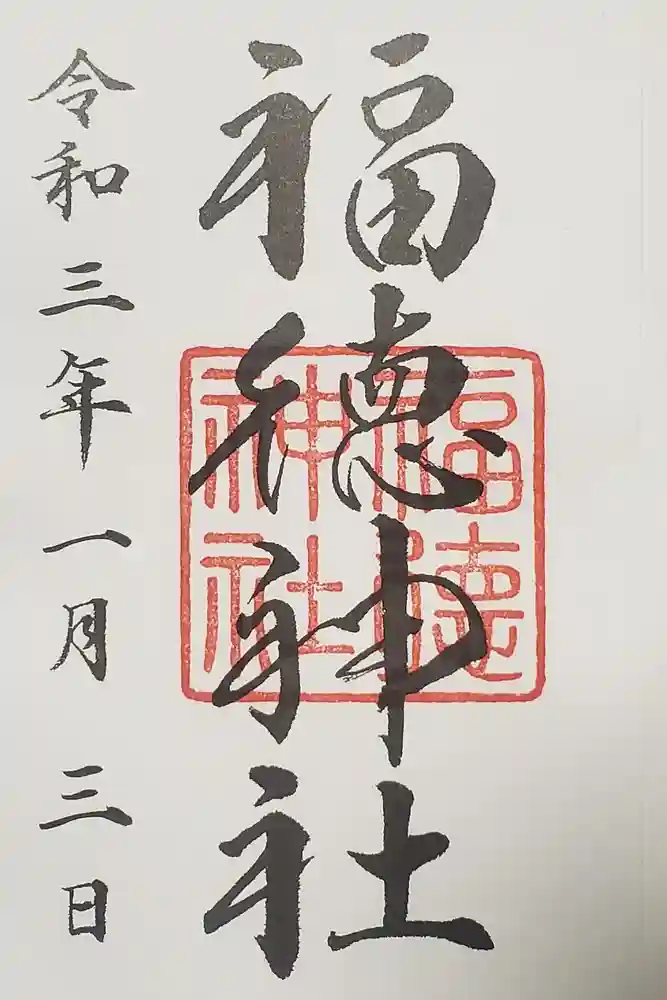 福徳神社
福徳
神社
令和三年一月三日